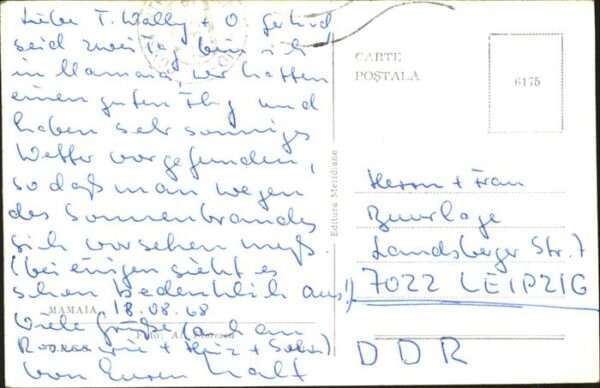 Liebe T. Wally + O. Gerhard
seid zwei Tag bin ich
in Mamaia, wir hatten
einen guten Flug und
haben sehr sonniges
Wetter vorgefunden,
so daß man wegen
des Sonnenbrandes
sich vorsehen muß.
(bei einigen sieht es
schon bedenklich aus!)
MAMAIA 18.08.68
Viele Grüße (auch an
+ Heinz +
von Eurem Ralf
CARTE
POȘTALĂ
6175
Editura Meridiane
Herrn + Frau
Buurlage
Landsberger Str. 7
7022 LEIPZIG
DDR